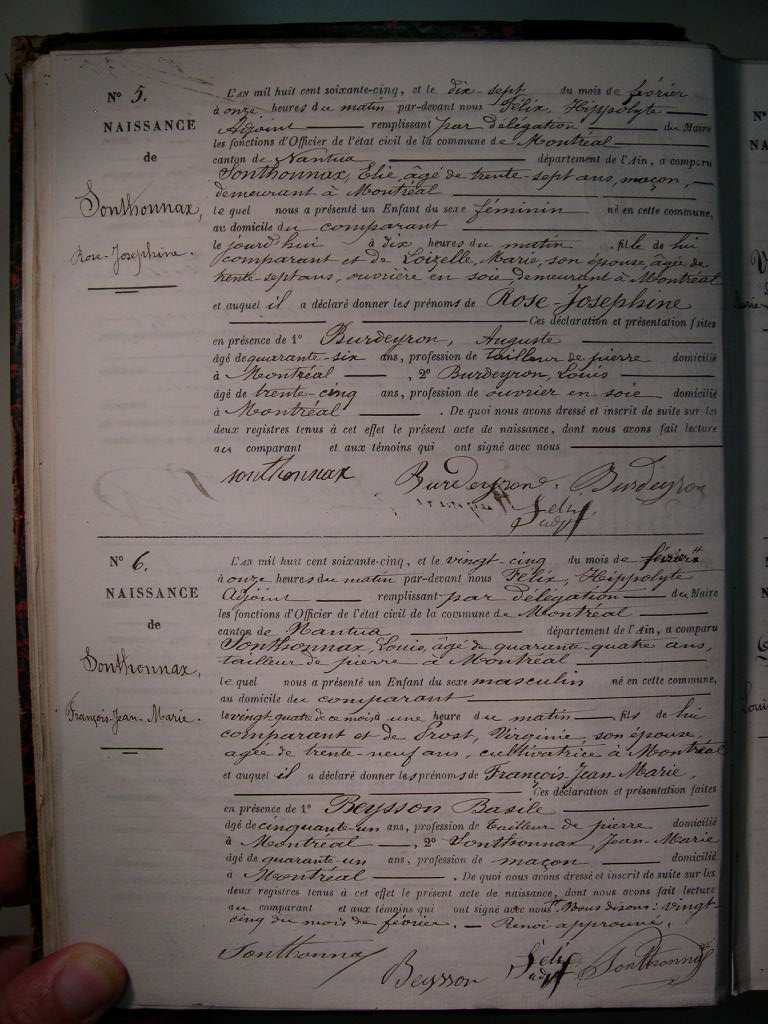 N° 5.
NAISSANCE
de
Sonthonnax,
Rose-Josephine.
L'AN mil huit cent soixante-cinq, et le dix-sept du mois de février
à onze heures du matin par-devant nous Félix, Hippolyte
Adjoint remplissant par délégation du Maire
les fonctions d'Officier de l'état civil de la commune de Montréal
canton de Nantua département de l'Ain, a comparu
Sonthonnax, Elie, âgé de trente-sept ans, maçon,
demeurant à Montréal
lequel nous a présenté un Enfant du sexe féminin né en cette commune,
au domicile du comparant
le jourd'hui à dix heures du matin fille de lui
comparant et de Loizelle, Marie, son épouse, âgée de
trente-sept ans, ouvrière en soie, demeurant à Montréal
et auquel il a déclaré donner les prénoms de Rose-Josephine
Ces déclaration et présentation faites
en présence de 1° Burdeyron, Auguste
âgé de quarante-six ans, profession de tailleur de pierre domicilié
à Montréal , 2° Burdeyron, Louis
âgé de trente-cinq ans, profession de ouvrier en soie domicilié
à Montréal . De quoi nous avons dressé et inscrit de suite sur les
deux registres tenus à cet effet le présent acte de naissance, dont nous avons fait lecture
au comparant et aux témoins qui ont signé avec nous
sonthonnax Burdeyron. Burdeyron
Félix
adj<sup>t</sup>
N° 6.
NAISSANCE
de
Sonthonnax,
François-Jean-Marie.
L'AN mil huit cent soixante-cinq, et le vingt-cinq du mois de février
à onze heures du matin par-devant nous Félix, Hippolyte
Adjoint remplissant par délégation du Maire
les fonctions d'Officier de l'état civil de la commune de Montréal
canton de Nantua département de l'Ain, a comparu
Sonthonnax, Louis, âgé de quarante-quatre ans,
tailleur de pierre à Montréal
lequel nous a présenté un Enfant du sexe masculin né en cette commune,
au domicile du comparant
le vingt quatre de ce mois à une heure du matin fils de lui
comparant et de Prost, Virginie, son épouse,
âgée de trente-neuf ans, cultivatrice à Montréal
et auquel il a déclaré donner les prénoms de François-Jean-Marie,
Ces déclaration et présentation faites
en présence de 1° Beysson Basile
âgé de cinquante-un ans, profession de tailleur de pierre domicilié
à Montréal , 2° Sonthonnax, Jean-Marie
âgé de quarante-un ans, profession de maçon domicilié
à Montréal . De quoi nous avons dressé et inscrit de suite sur les
deux registres tenus à cet effet le présent acte de naissance, dont nous avons fait lecture
au comparant et aux témoins qui ont signé avec nous. Nous disons: vingt-
cinq du mois de février. — Renvoi approuvé.
Sonthonnax Beysson Félix Sonthonnax
adj<sup>t</sup>